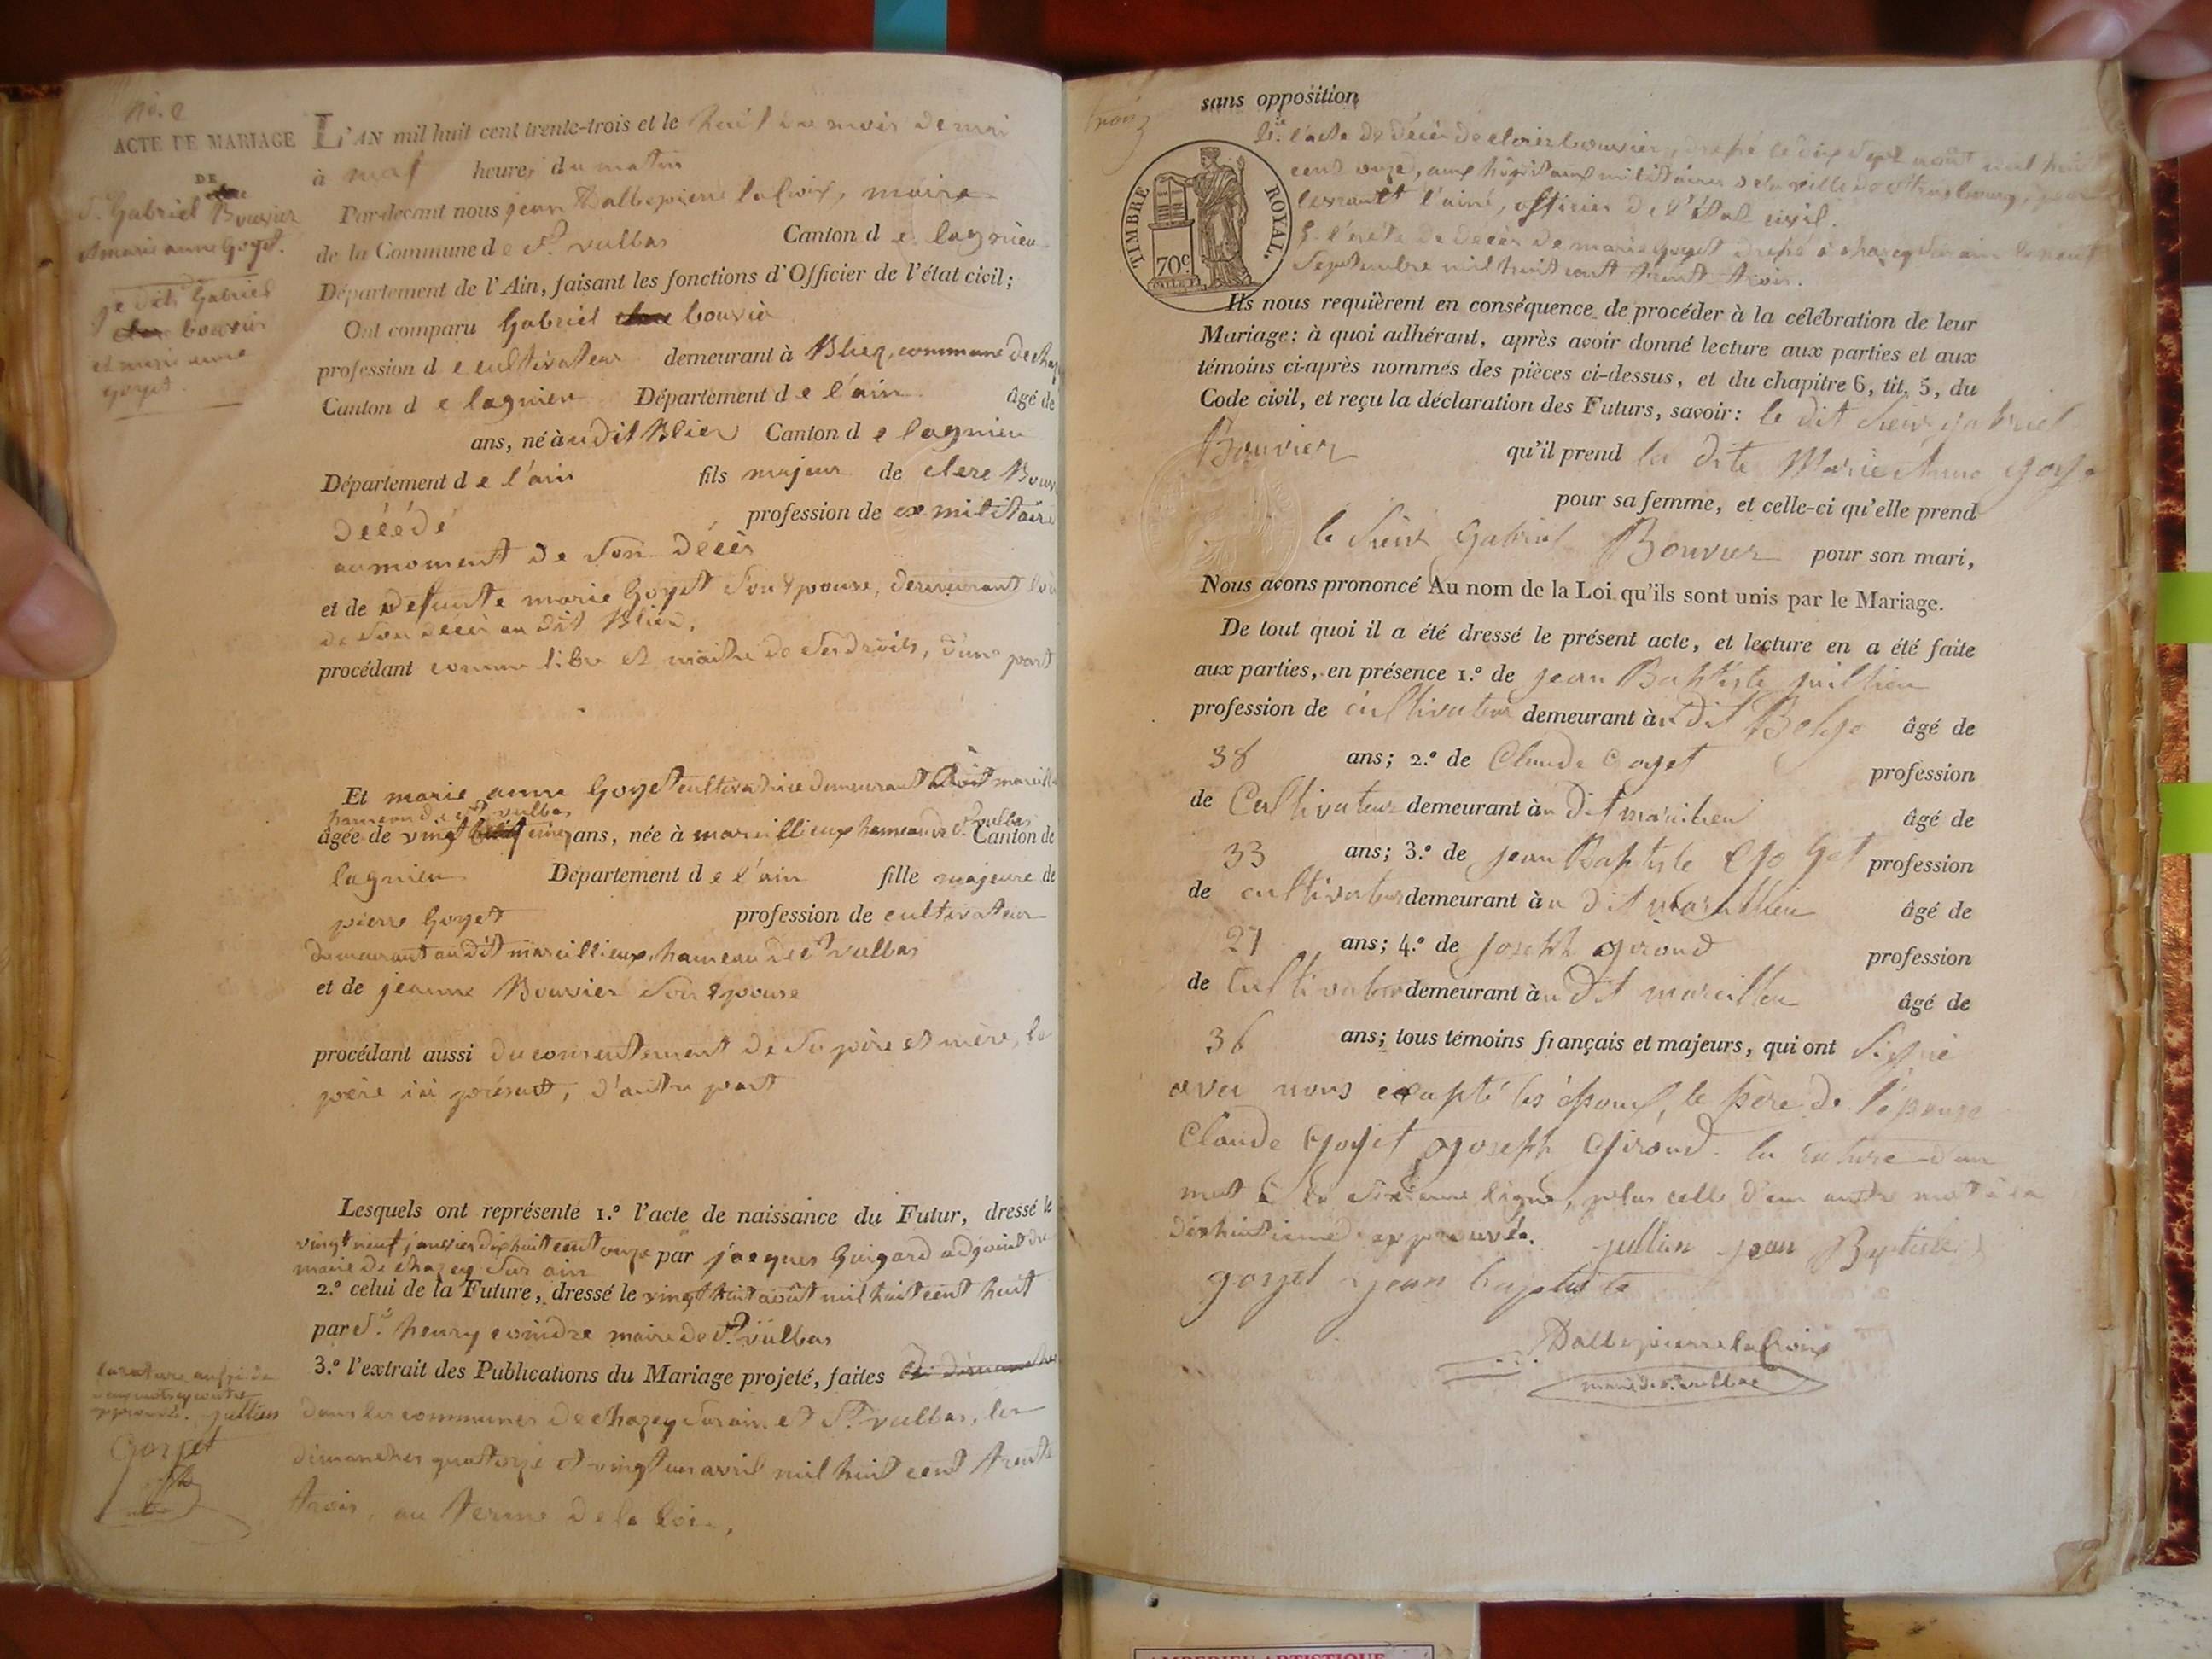 No. 8
ACTE DE MARIAGE
DE
St. Gabriel Bouvier
et marie anne Goyet.
je dits Gabriel
bouvier
et marie anne
goyet.
L'AN mil huit cent trente-trois et le huit du mois de mai
à neuf heures du matin
Par-devant nous jean Dallepierre lacroix, maire
de la Commune de St. vulbas Canton de lagnieu
Département de l'Ain, faisant les fonctions d'Officier de l'état civil;
Ont comparu Gabriel bouvier
profession de cultivateur demeurant à Blier, commune de chaz
Canton de lagnieu Département de l'ain âgé de
ans, né àudit Blier Canton de lagnieu
Département de l'ain fils majeur de clere Bouv
décédé profession de ex militaire
au moment de son décès
et de defunte marie Goyet son épouse, demeurant lor
de son décès au dit Blier,
procédant comme libre et maitre de ses droits, d'une part
Et marie anne Goyet cultivatrice demeurant
hameau de St. vulbas
âgée de vingt cinq ans, née à marcillieux hameau de St. vulbas Canton de
lagnieu Département de l'ain fille majeure de
pierre Goyet profession de cultivateur
demeurant au dit marcillieux, hameau de St. vulbas
et de jeanne Bouvier son épouse
procédant aussi du consentement de ses père et mère, le
père ici présent, d'autre part
Lesquels ont représenté 1.º l'acte de naissance du Futur, dressé le
vingt neuf janvier dix huit cent onze par jacques Guigard adjoint du
maire de chazey sur ain
2.º celui de la Future, dressé le vingt huit août mil huit cent huit
par Sr. henry coindre maire de St. vulbas
3.º l'extrait des Publications du Mariage projeté, faites
dans les communes de chazey sur ain et St. vulbas, les
dimanches quatorze et vingt un avril mil huit cent trente
trois, au terme de la loi,
la rature aussi de
approuvée. jullien
Goyet
sans opposition
4.º l'acte de décès de bouvier, dressé le dix sept août mil huit
cent onze, aux hôpitaux militaires de la ville de Strasbourg, par
l'ainé, officier de l'état civil.
5. l'acte de décès de marie goyet dressé à chazey sur ain le neuf
Septembre mil huit cent trent trois.
TIMBRE ROYAL.
70c.
Ils nous requièrent en conséquence de procéder à la célébration de leur
Mariage: à quoi adhérant, après avoir donné lecture aux parties et aux
témoins ci-après nommés des pièces ci-dessus, et du chapitre 6, tit. 5, du
Code civil, et reçu la déclaration des Futurs, savoir: le dit Sieur gabriel
Bouvier qu'il prend la dite Marie Anne goye
pour sa femme, et celle-ci qu'elle prend
le Sieur Gabriel Bouvier pour son mari,
Nous avons prononcé Au nom de la Loi qu'ils sont unis par le Mariage.
De tout quoi il a été dressé le présent acte, et lecture en a été faite
aux parties, en présence 1.º de jean Baptiste juillien
profession de cultivateur demeurant àu dit âgé de
38 ans; 2.º de Claude Goyet profession
de Cultivateur demeurant àu dit marcilieu âgé de
33 ans; 3.º de jean Baptiste Goyet profession
de cultivateur demeurant àu dit marcillieu âgé de
27 ans; 4.º de joseph girond profession
de Cultivateur demeurant àu dit marcilleu âgé de
36 ans; tous témoins français et majeurs, qui ont signé
avec nous excepté les époux, le père de l'épouse
Claude Goyet joseph Girond. la rature d'un
mot à la sixieme ligne, plus celle d'un autre mot à la
dixhuitieme approuvée. jullien jean Baptiste
goyet jean baptiste
Dallepierre lacroix
maire de St. vulbas